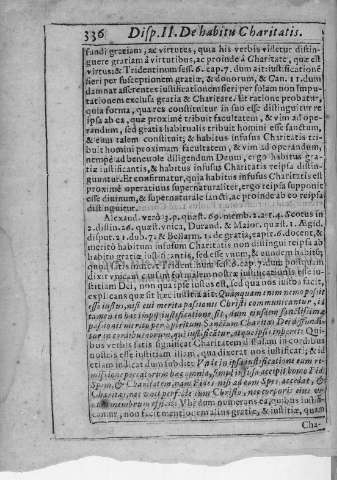 336 Disp. II. De habitu Charitatis.
fundi gratiam, ac virtutes, qua his verbis videtur distin-
guere gratiam à virtutibus, ac proinde à Charitate, quæ est
virtus: & Tridentinum sess. 6. cap. 7. dum ait iustificationē
fieri per susceptionem gratiæ, & donorum, & Can. 11. dum
damnat asserentes iustificationem fieri per solam non impu-
tationem exclusa gratia & Charitate. Et ratione probatur,
quia forma, quæ res constituitur in suo esse distinguitur re
ipsa ab ea, quæ proximè tribuit facultatem, & vim ad ope-
randum, sed gratia habitualis tribuit homini esse sanctum,
& eum talem constituit; & habitus infusus Charitatis tri-
buit homini proximam facultatem, & vim ad operandum,
nempè ad beneuole diligendum Deum, ergo habitus gra-
tiæ iustificantis, & habitus infusus Charitatis reipsa distin-
guuntur. Et confirmatur, quia habitus infusus Charitatis est
proximè operatiuus supernaturaliter, ergo reipsa supponit
esse diuinum, & supernaturale sancti, ac proinde ab eo reipsa
distinguitur.
Alexand. verò 3. p. quæst. 69. memb. 2. art. 4. Scotus in
2. distin. 26. quæst. vnica, Durand. & Maior. quæst. 1. Ægid.
disput. 21. dub. 7. & Bellarm. 1. de gratia, capit. 6. docent, &
merito habitum infusum Charitatis non distingui reipsa ab
habitu gratiæ iustificantis, sed esse vnum, & eundem habitū;
quod satis indicat Tridentinum sess. 6. cap. 7. dum postquam
dixit vnicam causam formalem nostræ iustificationis esse iu-
stitiam Dei, non qua ipse iustus est, sed qua nos iustos facit,
explicans quæ sit hæc iustitia ait: Quamquam enim nemo possit
esse iustus, nisi cui merita passionis Christi communicantur, id
tamen in hac impij iustificatione fit, dum eiusdem sanctissimæ
passionis merito per spiritum Sanctum Charitas Dei diffundi-
tur in cordibus eorum, qui iustificantur, atque ipsis inhæret: Qui-
bus verbis satis significat Charitatem diffusam in cordibus
nostris esse iustitiam illam, qua dixerat nos iustificari; & id
etiam indicat dum subdit: Vnde in ipsa iustificatione cum re-
missione peccatorum hæc omnia simul infusa accipit homo Fidē
Spem, & Charitatem, nam Fides nisi ad eam Spes accedat, &
Charitas, nec
Vbi dum
Cha-